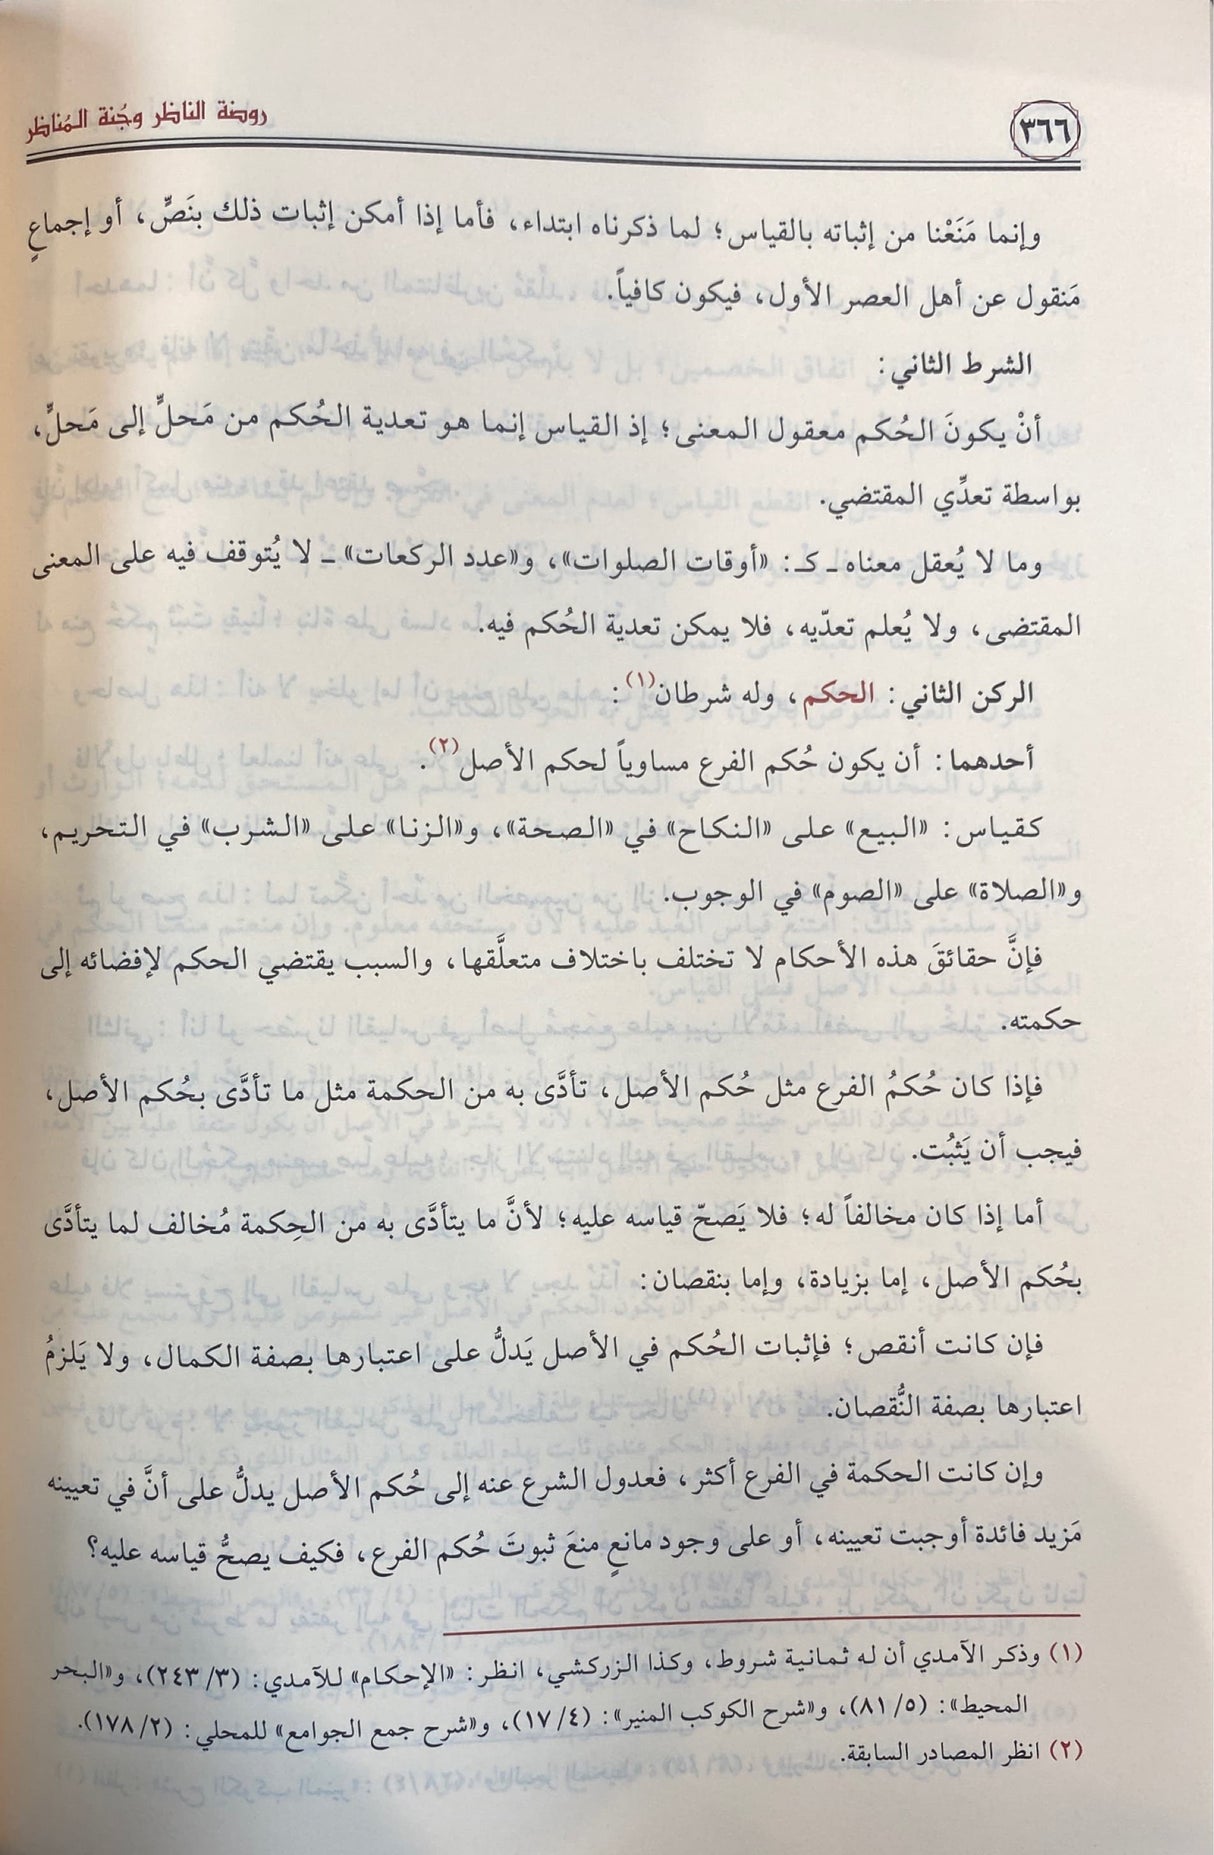 ٣٦٦
روضة الناظر وجُنة المُناظر
وإنما مَنَعْنا من إثباته بالقياس؛ لما ذكرناه ابتداء، فأما إذا أمكن إثبات ذلك بنَصٍّ، أو إجماعٍ
مَنقول عن أهل العصر الأول، فيكون كافياً.
الشرط الثاني:
أنْ يكونَ الحُكم معقول المعنى؛ إذ القياس إنما هو تعدية الحُكم من مَحلٍّ إلى مَحلٍّ،
بواسطة تعدِّي المقتضي.
وما لا يُعقل معناه ـ كـ: «أوقات الصلوات»، و«عدد الركعات» ـ لا يُتوقف فيه على المعنى
المقتضى، ولا يُعلم تعدّيه، فلا يمكن تعدية الحُكم فيه.
الركن الثاني: الحكم، وله شرطان(١):
أحدهما: أن يكون حُكم الفرع مساوياً لحكم الأصل(٢).
كقياس: «البيع» على «النكاح» في «الصحة»، و«الزنا» على «الشرب» في التحريم،
و«الصلاة» على «الصوم» في الوجوب.
فإنَّ حقائقَ هذه الأحكام لا تختلف باختلاف متعلَّقها، والسبب يقتضي الحكم لإفضائه إلى
حكمته.
فإذا كان حُكمُ الفرع مثل حُكم الأصل، تأدَّى به من الحكمة مثل ما تأدَّى بحُكم الأصل،
فيجب أن يَثبُت.
أما إذا كان مخالفاً له؛ فلا يَصحّ قياسه عليه؛ لأنَّ ما يتأدَّى به من الحِكمة مُخالف لما يتأدَّى
بحُكم الأصل، إما بزيادة، وإما بنقصان:
فإن كانت أنقص؛ فإثبات الحُكم في الأصل يَدلُّ على اعتبارها بصفة الكمال، ولا يَلزمُ
اعتبارها بصفة النُّقصان.
وإن كانت الحكمة في الفرع أكثر، فعدول الشرع عنه إلى حُكم الأصل يدلُّ على أنَّ في تعيينه
مَزيد فائدة أوجبت تعيينه، أو على وجود مانعٍ منعَ ثبوتَ حُكم الفرع، فكيف يصحُّ قياسه عليه؟
(١) وذكر الآمدي أن له ثمانية شروط، وكذا الزركشي، انظر: «الإحكام» للآمدي: (٣/ ٢٤٣)، و«البحر
المحيط»: (٥/ ٨١)، و«شرح الكوكب المنير»: (٤/ ١٧)، و«شرح جمع الجوامع» للمحلي: (٢/ ١٧٨).
(٢) انظر المصادر السابقة.